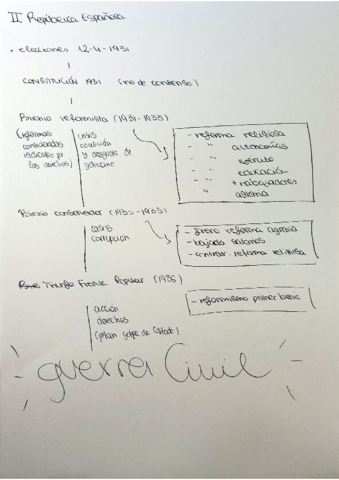 II República Española
· elecciones 12-4-1931
CONSTITUCIÓN 1931 (no de consenso)
Bienio reformista (1931-1933)
(reformas
radicales
los derechos)
crisis
coalición
y desgaste de
gobierno
- reforma religiosa
- " autonomías
- " ejército
- " educación
- " trabajadores
" agraria
Bienio conservador (1933-1935)
crisis
corrupción
- freno reforma agraria
- bajada salarios
- contrar. reforma religiosa
Triunfo Frente Popular (1936)
acción
derechos
(plan golpe de Estado)
- reformismo primer bienio
guerra Civil